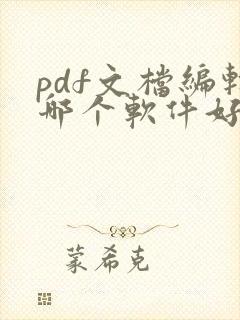 pdf文檔編
哪个軟件好
蒙希克